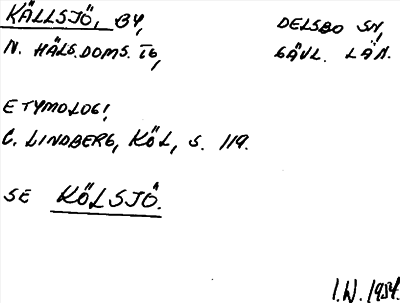 KÄLLSJÖ, BY, DELSBO SN,
N. HÄLS. DOMS. TG, GÄVL. LÄN.
ETYMOLOGI,
C. LINDBERG, KÖL, S. 119.
SE KÖLSJÖ.
I.W. 1954.